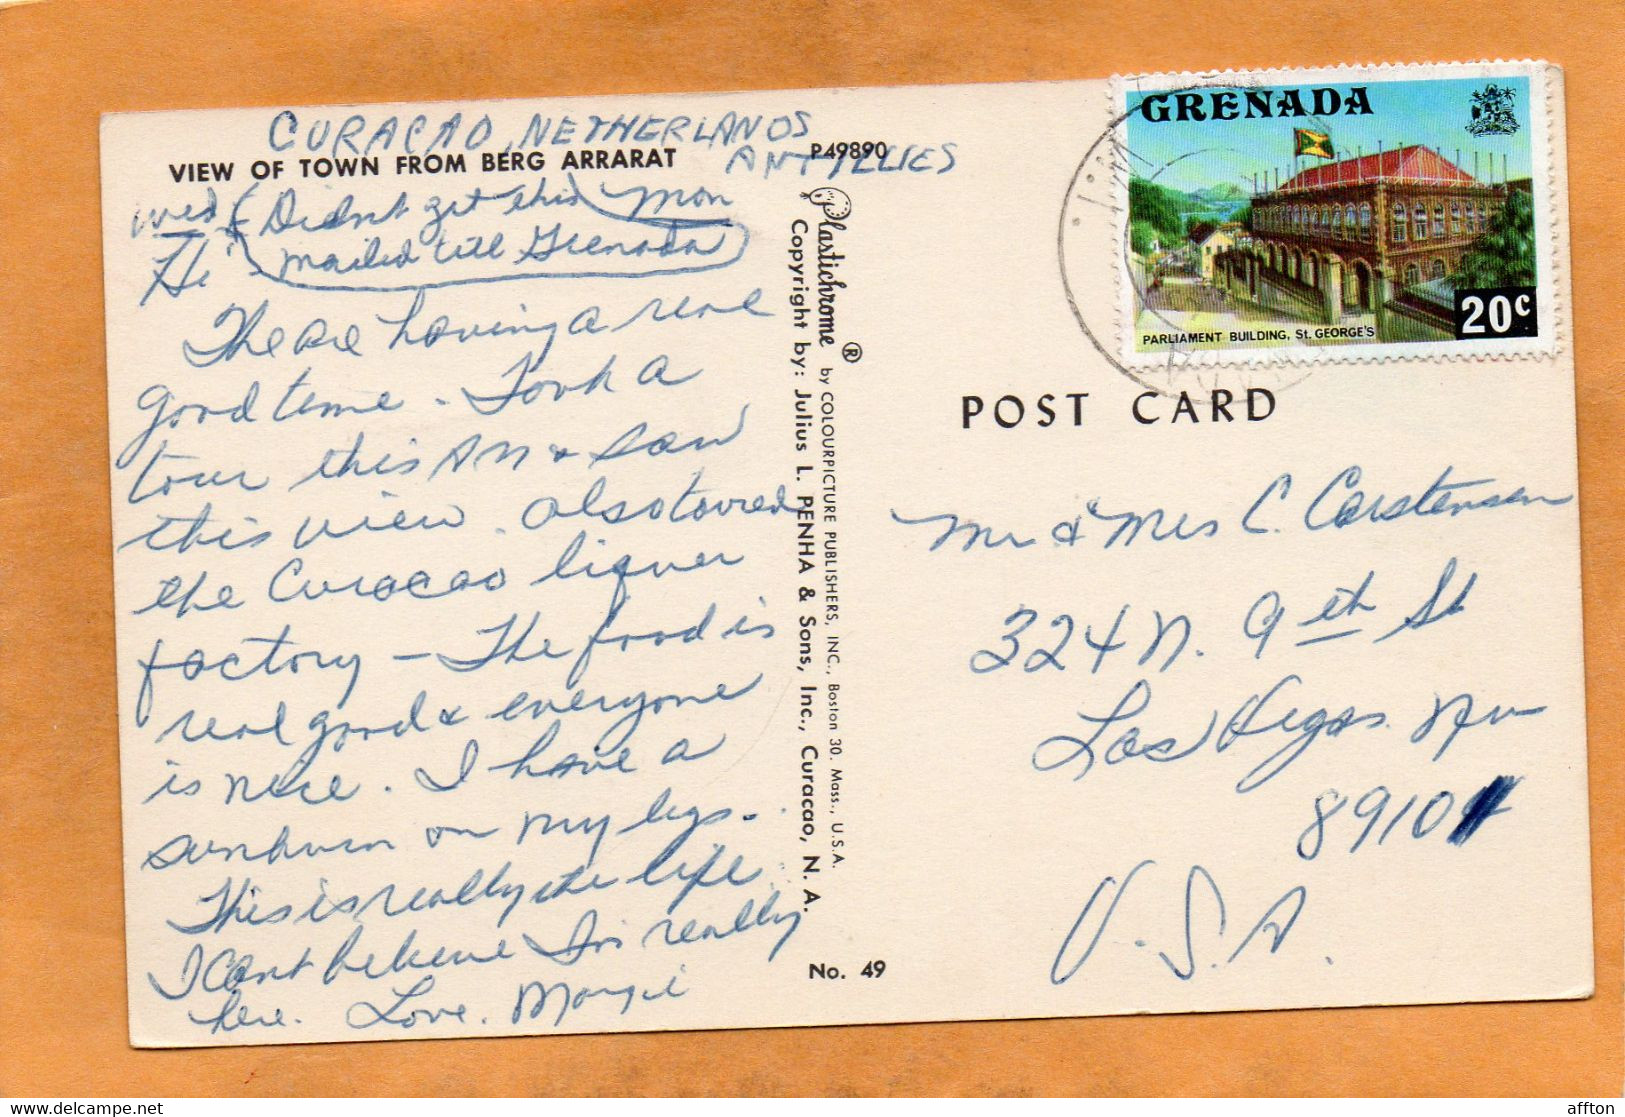 CURACAO, NETHERLANDS
ANTILLIES
VIEW OF TOWN FROM BERG ARRARAT
P49890
Wed (Didn't get this mailed till Grenada) Mon
Hi
The are having a real
good time - Took a
tour this AM & saw
this view. Also toured
the Curacao liquer
factory - The food is
real good & everyone
is nice. I have a
sunburn on my legs.
This is really the life
I cant believe Im really
here. Love. Margie
Plastichrome ® by COLOURPICTURE PUBLISHERS, INC., Boston 30, Mass., U.S.A.
Copyright by: Julius L. PENHA & Sons, Inc., Curacao, N. A.
No. 49
GRENADA
PARLIAMENT BUILDING, St. GEORGE'S
20c
POST CARD
Mr & Mrs C. Carstensen
324 N. 9th St
Las Vegas Nv
89101
U.S.A.
affton